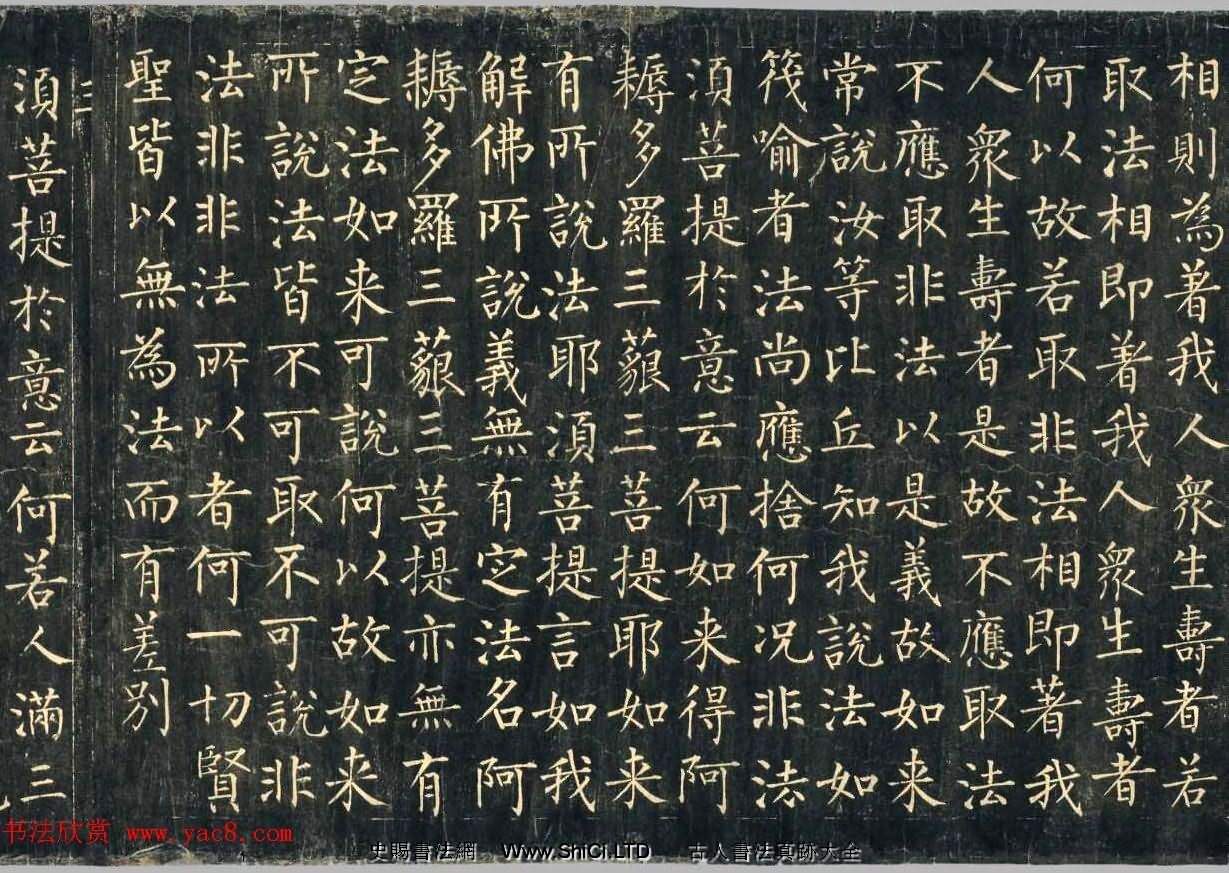 相則為著我人衆生壽者若
取法相即著我人衆生壽者
何以故若取非法相即著我
人衆生壽者是故不應取法
不應取非法以是義故如来
常說汝等比丘知我說法如
筏喻者法尚應捨何况非法
湏菩提於意云何如来得阿
耨多羅三藐三菩提耶如来
有所說法耶湏菩提言如我
解佛所說義無有定法名阿
耨多羅三藐三菩提亦無有
定法如来可說何以故如来
所說法皆不可取不可說非
法非非法所以者何一切賢
聖皆以無為法而有差別
三
湏菩提於意云何若人滿三
书法欣赏 www.yac8.com
史賜書法網 Www.ShiCi.LTD 古人書法真跡大全